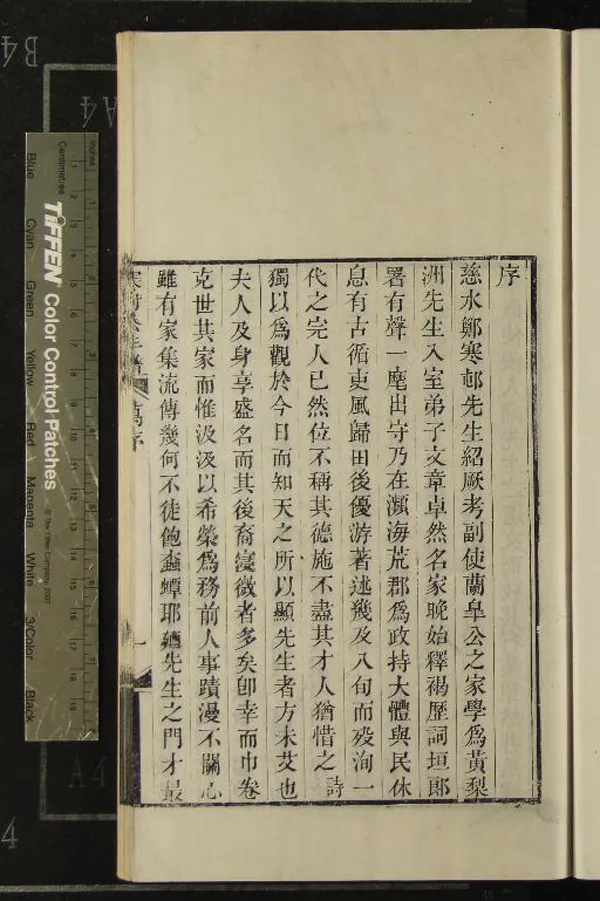 序
慈水鄭寒邨先生紹厥考副使蘭臯公之家學爲黃梨
洲先生入室弟子文章卓然名家晚始釋褐歴詞垣郎
署有聲一麾出守乃在瀕海荒郡爲政持大體與民休
息有古循吏風歸田後優游著述幾及八旬而歿洵一
代之完人已然位不稱其德施不盡其才人猶惜之詩
獨以爲觀於今日而知天之所以顯先生者方未艾也
夫人及身享盛名而其後裔寖微者多矣卽幸而巾卷
克世其家而惟汲汲以希榮爲務前人事蹟漫不關心
雖有家集流傳幾何不徒飽蠹蟫耶廼先生之門才最
年譜
萬序
一
B4
A4
A4
4
Inches
Centimetres
TIFFEN Color Control Patches
© The Tiffen Company, 2007
Blue
Cyan
Green
Yellow
Red
Magenta
White
3/Color
Black